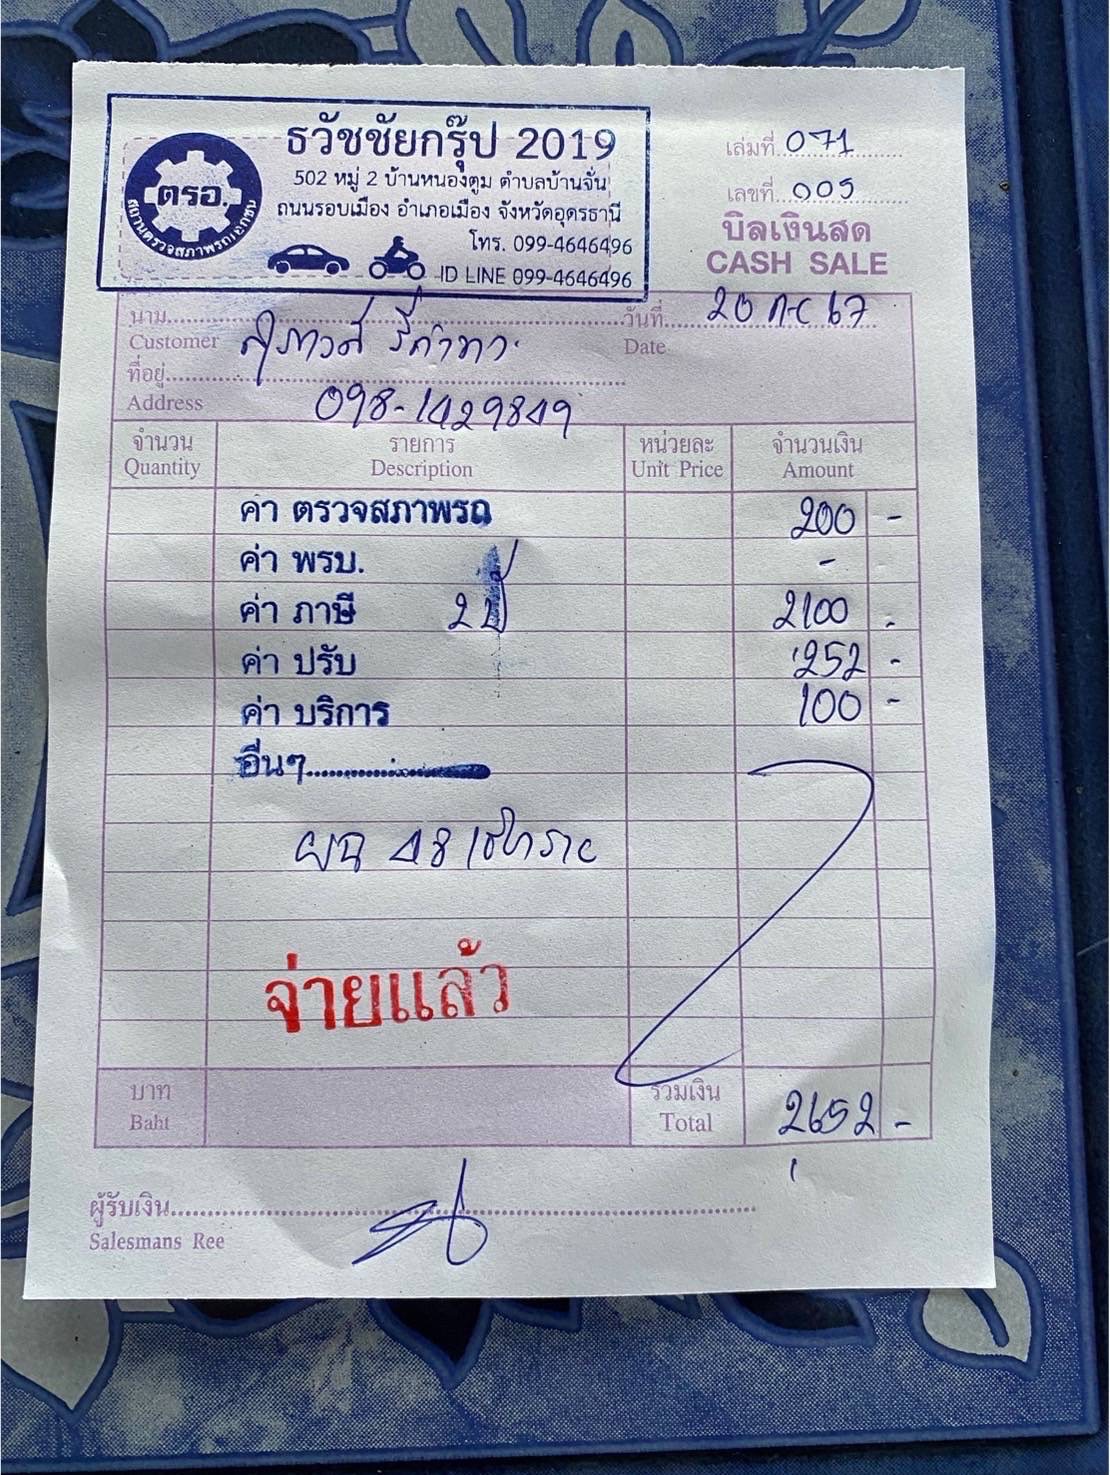 ธวัชชัยกรุ๊ป 2019
502 หมู่ 2 บ้านหนองตูม ตำบลบ้านจั่น
ถนนรอบเมือง อำเภอเมือง จังหวัดอุดรธานี
โทร. 099-4646496
ID LINE 099-4646496
ตรอ.
สถานตรวจสภาพรถเอกชน
เล่มที่ 071
เลขที่ 005
บิลเงินสด
CASH SALE
นาม
Customer
วันที่ 20 ก.ค 67
Date
ที่อยู่
Address 098-1429849
จำนวน รายการ หน่วยละ จำนวนเงิน
Quantity Description Unit Price Amount
ค่า ตรวจสภาพรถ 200 -
ค่า พรบ. -
ค่า ภาษี 2 ปี 2100 -
ค่า ปรับ 252 -
ค่า บริการ 100 -
อื่นๆ
ผฉ 48
จ่ายแล้ว
บาท รวมเงิน
Baht Total 2652 -
ผู้รับเงิน
Salesmans Ree